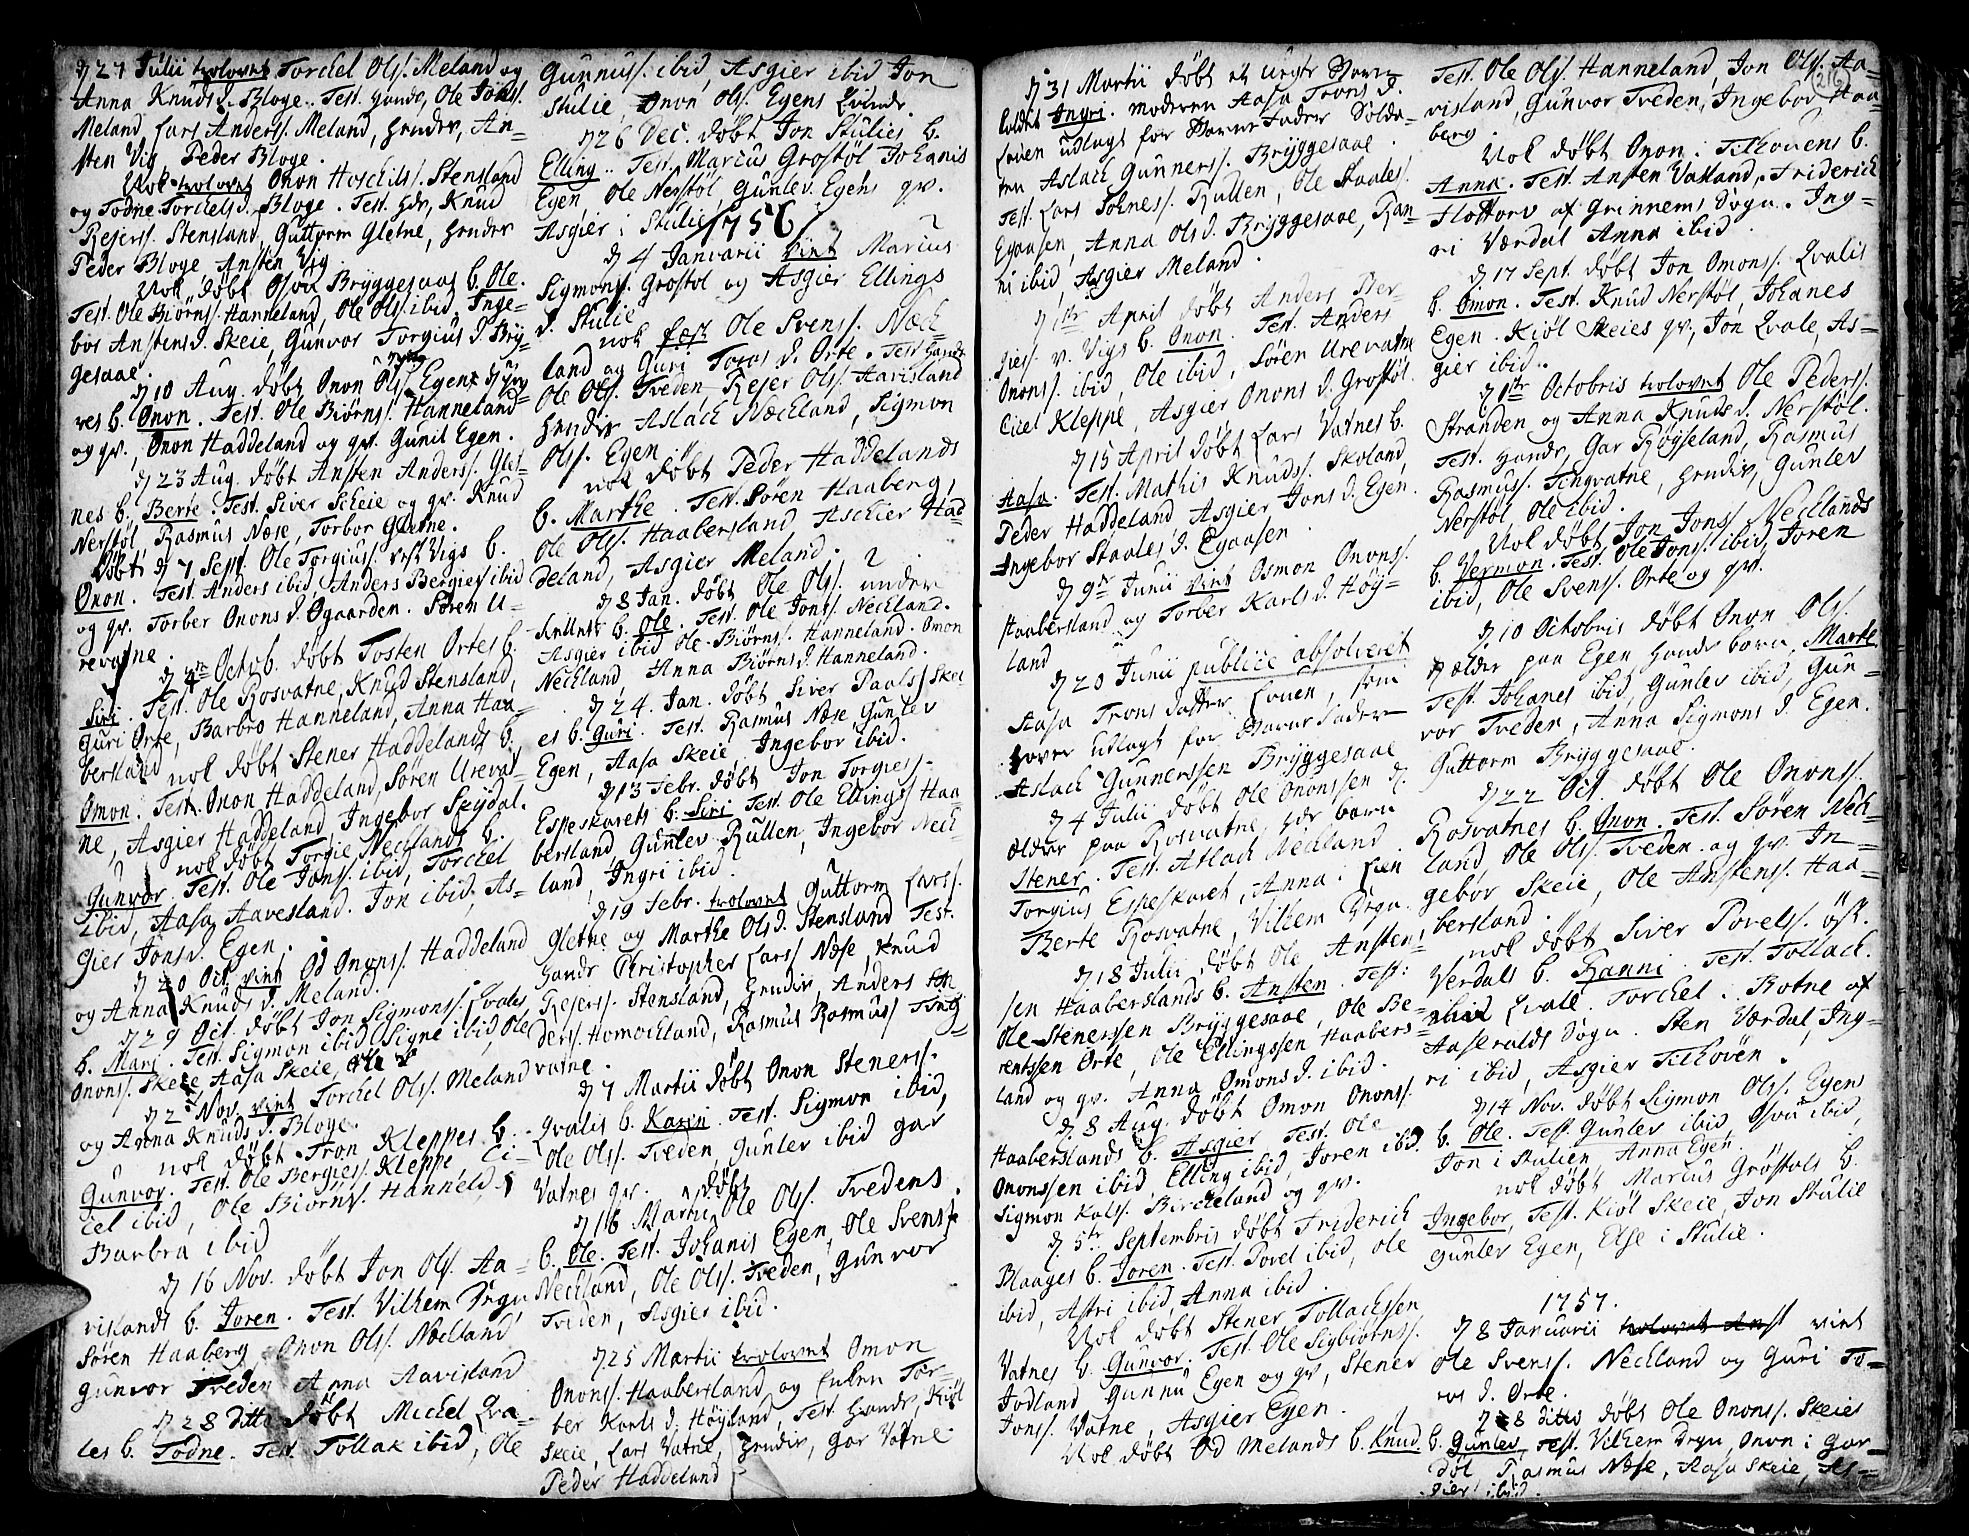 d 27 Julii trolovet Torckel Ols. Meland og
Anna Knuds d. Bloge. Test. hands, Ole Johs.
Meland, Lars Anders. Meland, hendes, An-
sten Vig, Peder Bloge.
Nok trolovet Onon Hoschilds. Stensland
og Todne Torckels d. Bloge. Test. hds, Knud
Rejers. Stensland, Guttorm Gletne, hendes
Peder Bloge, Ansten Vig
Nok døbt Osvu Bryggesaas b. Ole.
Test. Ole Biørns. Hanneland, Ole Ols. ibid, Inge-
bor Anstens d. Skeie, Gunvor Torgius d. Bry-
gesaae.
d 10 Aug. døbt Onon Ols. Egens
res b. Onon. Test. Ole Biørns. Hanneland
og qv., Onon Haddeland og qv. Gunil Egen.
d 23 Aug. døbt Ansten Anders. Glet-
nes b. Berte. Test. Siver Scheie og qv. Knud
Nerstøl, Rasmus Næse, Torbor Gletne.
Døbt d 7 Sept. Ole Torgius. Vigs b.
Onon. Test. Anders ibid, Anders Bergies. ibid
og qv. Torber Onons d. Øgaarden. Søren U-
revatne.
d 4 Octob. døbt Tosten Ortes b.
Siri. Test. Ole Rosvatne, Knud Stensland,
Guri Orte, Barbro Hanneland, Anna Haa-
bersland nok døbt Stener Haddelands b.
Omon. Test. Onon Haddeland, Søren Urevat-
ne, Asgier Haddeland, Ingebor Skydal.
nok døbt Torgie Necklands b.
Gunvor. Test. Ole Jons. ibid, Torckel
ibid, Aasa Aavesland. Jon ibid, As-
gier Jons d. Egen.
d 20 Oct. vint Od Onons. Haddeland
og Anna Knuds d. Meland.
d 29 Oct. døbt Jon Sigmons. Qvales
b. Mari. Test. Sigmon ibid, Signe ibid, Ole
Onons. Skeie, Aasa Skeie,
d 2 Nov. vint Torckel Ols. Meland
og Anna Knuds d. Bloge.
nok døbt Tron Kleppes b.
Gunvor. Test. Ole Bergies. Kleppe, Ci-
cel ibid, Ole Biørns. Hanneld.
Barbra ibid
d 16 Nov. døbt Jon Ols. Aa-
vislands b. Joren. Test. Vilhem Dygn
Søren Haaberg, Onon Ols. Neckland
Gunvor Tveden Anna Aavisland
d 28 ditto døbt Mickel Qva-
les b. Todne. Test. Tollak ibid, Ole
Gunnuss. ibid, Asgier ibid Jon
Stulie, Onon Ols. Egens Qvinde.
d 26 Dec. døbt Jon Stulies b.
Elling. Test. Marcus Grostøl Johanis
Egen Ole Nerstøl, Gunlev Egens qv.
Asgier i Stulie
1756
d 4 Januarii vint Marcus
Sigmons. Grostøl og Asgier Ellings
d. Stulie
nok fest Ole Svens. Neck-
land og Guri Toras d. Orte. Test. hands
Ole Ols. Tveden, Rejer Ols. Aavisland
hendes Aslack Neckland, Sigmon
Ols. Egen
nok døbt Peder Haddelands
b. Marthe. Test. Søren Haaberg,
Ole Ols. Haabersland Aschier Had-
deland, Asgier Meland.
d 8 Jan. døbt Ole Ols. under
b. Ole. Test. Ole Jons. Neckland.
Asgier ibid Ole Biørns. Hanneland. Omon
Neckland, Anna Biørns d. Hanneland.
d 24 Jan. døbt Siver Paals. Skei-
es b. Guri. Test. Rasmus Næse Gunlev
Egen, Aasa Skeie, Ingebor ibid.
d 13 Febr. døbt Jon Torgies.
Espeskarets b. Siri. Test. Ole Ellings. Haa-
bersland, Gunlev Rullen, Ingebor Neck-
land, Ingri ibid.
d 19 Febr. trolovet Guttorm Lars.
Gletne og Marthe Ols d. Stensland Test.
hands Christopher Lars. Næse, Knud
Rejers. Stensland, hendes, Anders An-
ders. Homockland, Rasmus Rasmus. Ting-
vatne.
d 7 Martii døbt Onon Steners.
Qvales b. Karin. Test. Sigmon ibid,
Ole Ols. Tveden, Gunlev ibid Gar
Vatnes qv.
d 16 Martii døbt Ole Ols. Tvedens
b. Ole. Test. Johanis Egen, Ole Svens.
Neckland, Ole Ols. Tveden, Gunvor
Tveden, Asgier ibid.
d 25 Martii trolovet Omon
Onons. Haabersland og Tor-
ber Karls d. Høyland, Test. hands, Kiøl
Skeie, Lars Vatne, hendes, Gar Vatne
Peder Haddeland
d 31 Martii døbt et uegte Barn
kaldet Ingri. Moderen Aasa Trons d.
Louen udlagt for Barne Fader Solda-
ten Aslack Gunners. Bryggesaae.
Test. Lars Johness. Rullen, Ole Staales.
Egaasen, Anna Ols d. Bryggesaae, Ran-
ni ibid, Asgier Meland.
d 1te April døbt Anders Ber-
gies. v. Vigs b. Onon. Test. Anders
Onons. ibid, Ole ibid, Søren Urevatne
Cicel Kleppe, Asgier Onons d. Grostøl.
d 15 April døbt Lars Vatnes b.
Aasa. Test. Mathis Knuds. Skoland,
Peder Haddeland, Asgier Jons d. Egen.
Ingebor Staales d. Egaasen
d 9 Junii vint Osmon Onons.
Haabersland og Torber Karls d. Høy-
land
d 20 Junii publice absolveret
Aasa Trons datter Louen, som
haver udlagt for Barne Fader
Aslack Gunnerssen Bryggesaae
d 4 Julii døbt Ole Ononssen d.
ælder paa Rosvatne, hds barn
Stener. Test. Aslach Neckland
Torgius Espeskaret, Anna i Lien
Berte Rosvatne, Vilhem Dygn.
d 18 Julii døbt Ole Ansten-
sen Haaberslands b. Ansten. Test:
Ole Stenersen Bryggesaae, Ole Be-
rentssen Orte, Ole Ellingssen Haabers-
land og qv. Anna Omons d. ibid.
d. 8 Aug. døbt Omon Onons.
Haaberslands b. Asgier Test. Ole
Ononssen ibid, Elling ibid, Joren ibd.
Sigmon Kals. Birckeland og qv.
d 5te Septembris døbt Friderich
Blaages b. Joren. Test. Povel ibid, Ole
ibid, Astri ibid, Anna ibid.
Nok døbt Stener Tollachssen
Vatnes b. Gunvor. Test. Ole Sigbiørns.
Jodland Gunnu Egen og qv, Stener
Jons. Vatne, Asgier Egen.
Nok døbt Od Melands b. Knud.
216
Test. Ole Ols. Hanneland, Jon Ols. Aa-
visland, Gunvor Tveden, Ingebor Haa-
berg.
Nok døbt Onon i Tilhovens b.
Anna. Test. Ansten Vatland, Friderich
Flottorv af Grinnems Sogn. Ing-
ri Værdal Anna ibid.
d 17 Sept. døbt Jon Omons. Qvalis
b. Omon. Test. Knud Nerstøl, Johanes
Egen. Kiøl Skeies qv., Jon Qvale, As-
gier ibid.
d 1te Octobris trolovet Ole Peders.
Stranden og Anna Knuds d. Nerstøl.
Test. hands, Gar Røyseland, Rasmus
Rasmus. Tingvatne, hendes, Gunlev
Nerstøl, Ole ibid.
Nok døbt Jon Jons. Necklands
b. Vermon. Test. Ole Jons. ibid, Joren
ibid, Ole Svens. Orte og qv.
d 10 Octobris døbt Onon Ols.
d ælder paa Egen hands barn, Marte
Test. Johanes ibid, Gunlev ibid, Gun-
vor Tveden, Anna Sigmons d. Egen.
Guttorm Bryggesaae.
d 22 Oct. døbt Ole Onons.
Rosvatnes b. Onon. Test. Søren Neck-
land, Ole Ols. Tveden og qv. In-
gebør Skeie, Ole Anstens. Haa-
bersland.
nok døbt Siver Povels. øst.
Verdals b. Ranni. Test. Tollack
Qvale. Torckel Botne af
Aaseralds Sogn. Sten Værdal, Ing-
ri ibid, Asgier Tilhovén.
d 14 Nov. døbt Sigmon Ols. Egens
b. Ole. Test. Gunlev ibid, Osvu ibid,
Jon i Stulien, Anna Egen.
nok døbt Marcus Grøstøls b.
Ingebor, Test. Kiøl Skeie, Jon Stulie
Gunlev Egen, Else i Stulie.
1757.
d 8 Januarii trolovet Anst vint
Ole Svens. Neckland og Guri To-
ras d. Orte.
d 8 ditto døbt Ole Onons. Skeies
b. Gunlev, Test. Vilhem Dygn, Onon i Gar-
døl, Rasmus Næse, Aasa Skeie, As-
gier ibid.